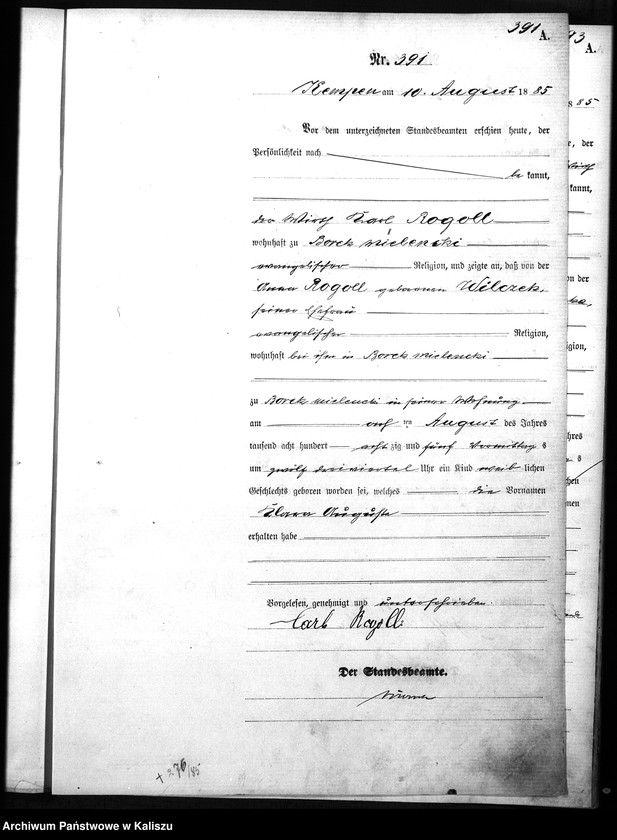 391
A.
Nr. 391
Kempen am 10. August 1885
Vor dem unterzeichneten Standesbeamten erschien heute, der
Persönlichkeit nach
be kannt,
der Wirth Karl Rogoll
wohnhaft zu Borek mielencki
evangelischer Religion, und zeigte an, daß von der
Anna Rogoll geborenen Wilczek,
seiner Ehefrau
evangelischer Religion,
wohnhaft bei ihm in Borek mielencki
zu Borek mielencki in seiner Wohnung
am acht ten August des Jahres
tausend acht hundert acht zig und fünf Vormittag s
um zwölf dreiviertel Uhr ein Kind weib lichen
Geschlechts geboren worden sei, welches die Vornamen
Klara Auguste
erhalten habe
Vorgelesen, genehmigt und unterschrieben
Carl Rogoll
Der Standesbeamte.
+ 276/85
93
A.
Archiwum Państwowe w Kaliszu